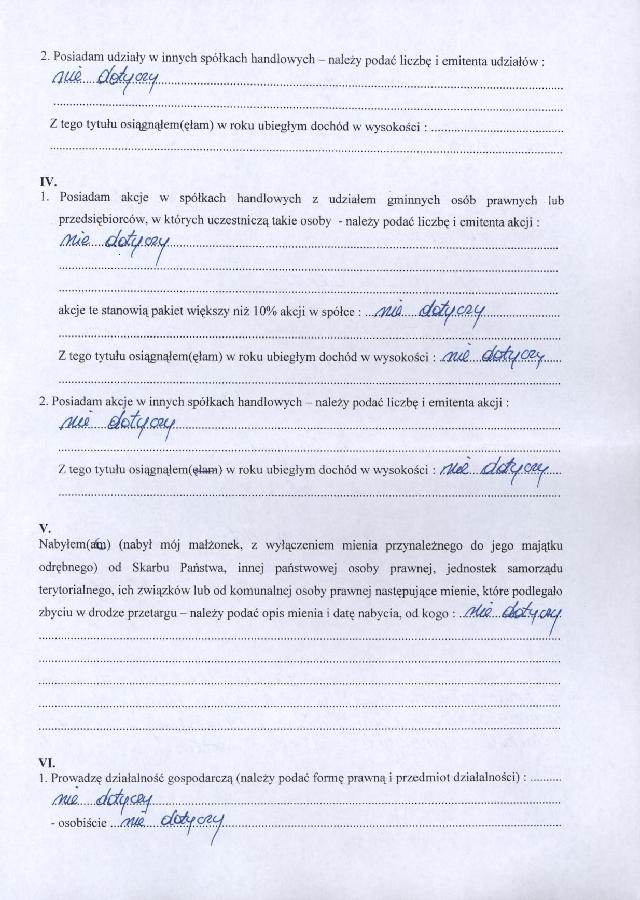 2. Posiadam udziały w innych spółkach handlowych – należy podać liczbę i emitenta udziałów :
nie dotyczy
Z tego tytułu osiągnąłem(ęłam) w roku ubiegłym dochód w wysokości :
IV.
1. Posiadam akcje w spółkach handlowych z udziałem gminnych osób prawnych lub
przedsiębiorców, w których uczestniczą takie osoby - należy podać liczbę i emitenta akcji :
nie dotyczy
akcje te stanowią pakiet większy niż 10% akcji w spółce : nie dotyczy
Z tego tytułu osiągnąłem(ęłam) w roku ubiegłym dochód w wysokości : nie dotyczy
2. Posiadam akcje w innych spółkach handlowych – należy podać liczbę i emitenta akcji :
nie dotyczy
Z tego tytułu osiągnąłem(ęłam) w roku ubiegłym dochód w wysokości : nie dotyczy
V.
Nabyłem(am) (nabył mój małżonek, z wyłączeniem mienia przynależnego do jego majątku
odrębnego) od Skarbu Państwa, innej państwowej osoby prawnej, jednostek samorządu
terytorialnego, ich związków lub od komunalnej osoby prawnej następujące mienie, które podlegało
zbyciu w drodze przetargu – należy podać opis mienia i datę nabycia, od kogo : nie dotyczy
VI.
1. Prowadzę działalność gospodarczą (należy podać formę prawną i przedmiot działalności) :
nie dotyczy
- osobiście nie dotyczy